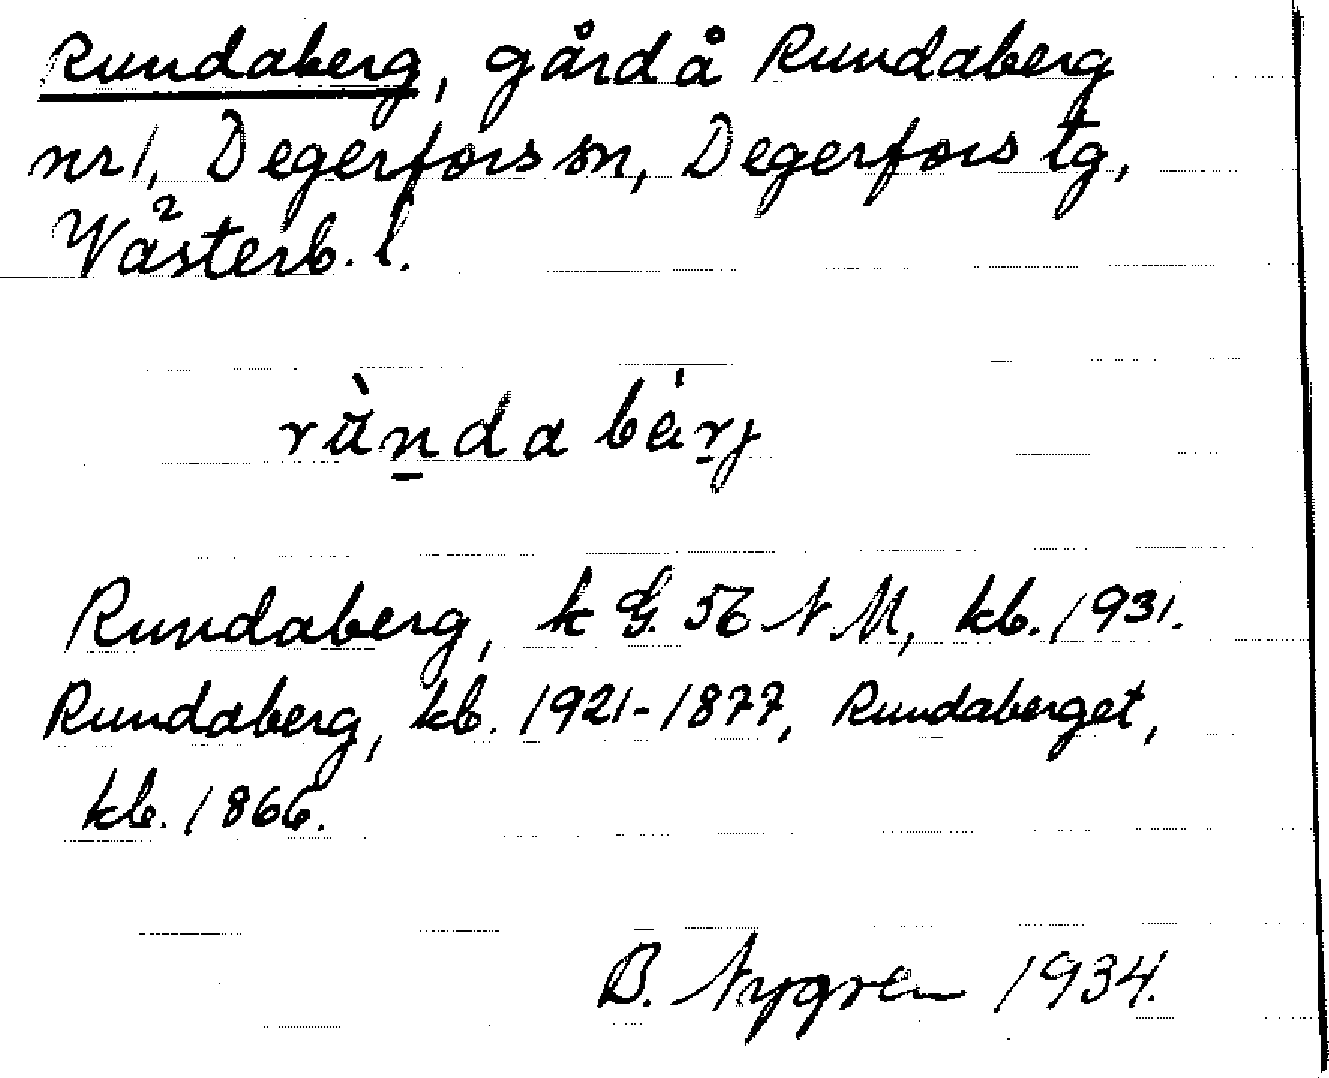 Rundaberg, gård å Rundaberg
nr 1, Degerfors sn, Degerfors tg,
Västerb. l.
rùndabärj
Rundaberg, k G. 56 N M, kb. 1931.
Rundaberg, kb. 1921-1877, Rundaberget,
kb. 1866.
B. Nygren 1934.